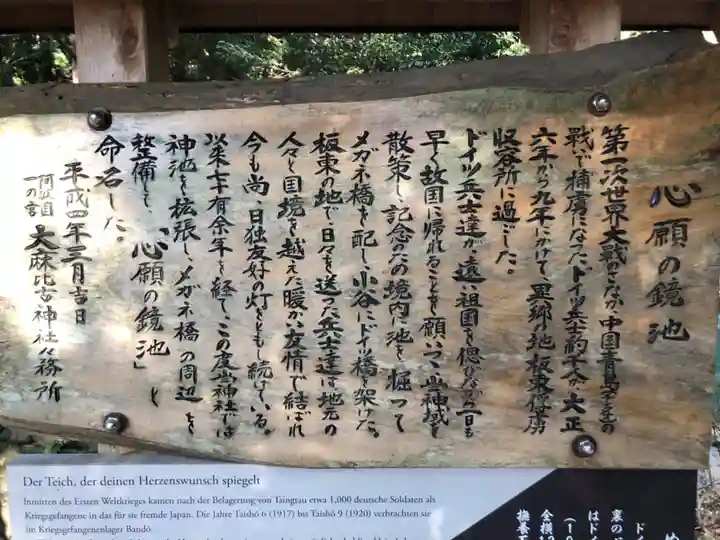 心願の鏡池
第一次世界大戦のさなか、中国青島の
戦いで捕虜になったドイツ兵士約千人が、大正
六年から九年にかけて、異郷の地板東俘虜
収容所に過ごした。
ドイツ兵士達が、遠い祖国を偲びながら一日も
早く故国に帰れることを願いつつ、当神域を
散策し、記念のため境内に池を掘って
メガネ橋を配し、小谷にドイツ橋を架けた。
板東の地で日々を送った兵士達は地元の
人々と国境を越えた暖かい友情で結ばれ
今も尚、日独友好の灯をともし続けている。
以来七十有余年を経て、この度当神社では
神池を拡張し、メガネ橋の周辺を
整備して、「心願の鏡池」と
命名した。
平成四年三月吉日
阿波国
一の宮 大麻比古神社々務所
Der Teich, der deinen Herzenswunsch spiegelt
Inmitten des Ersten Weltkrieges kamen nach der Belagerung von Tsingtau etwa 1,000 deutsche Soldaten als
Kriegsgefangene in das für sie fremde Japan. Die Jahre Taishō 6 (1917) bis Taishō 9 (1920) verbrachten sie
im Kriegsgefangenenlager Bandō.
め
ドイ
裏の
はドイ
全横
撫養